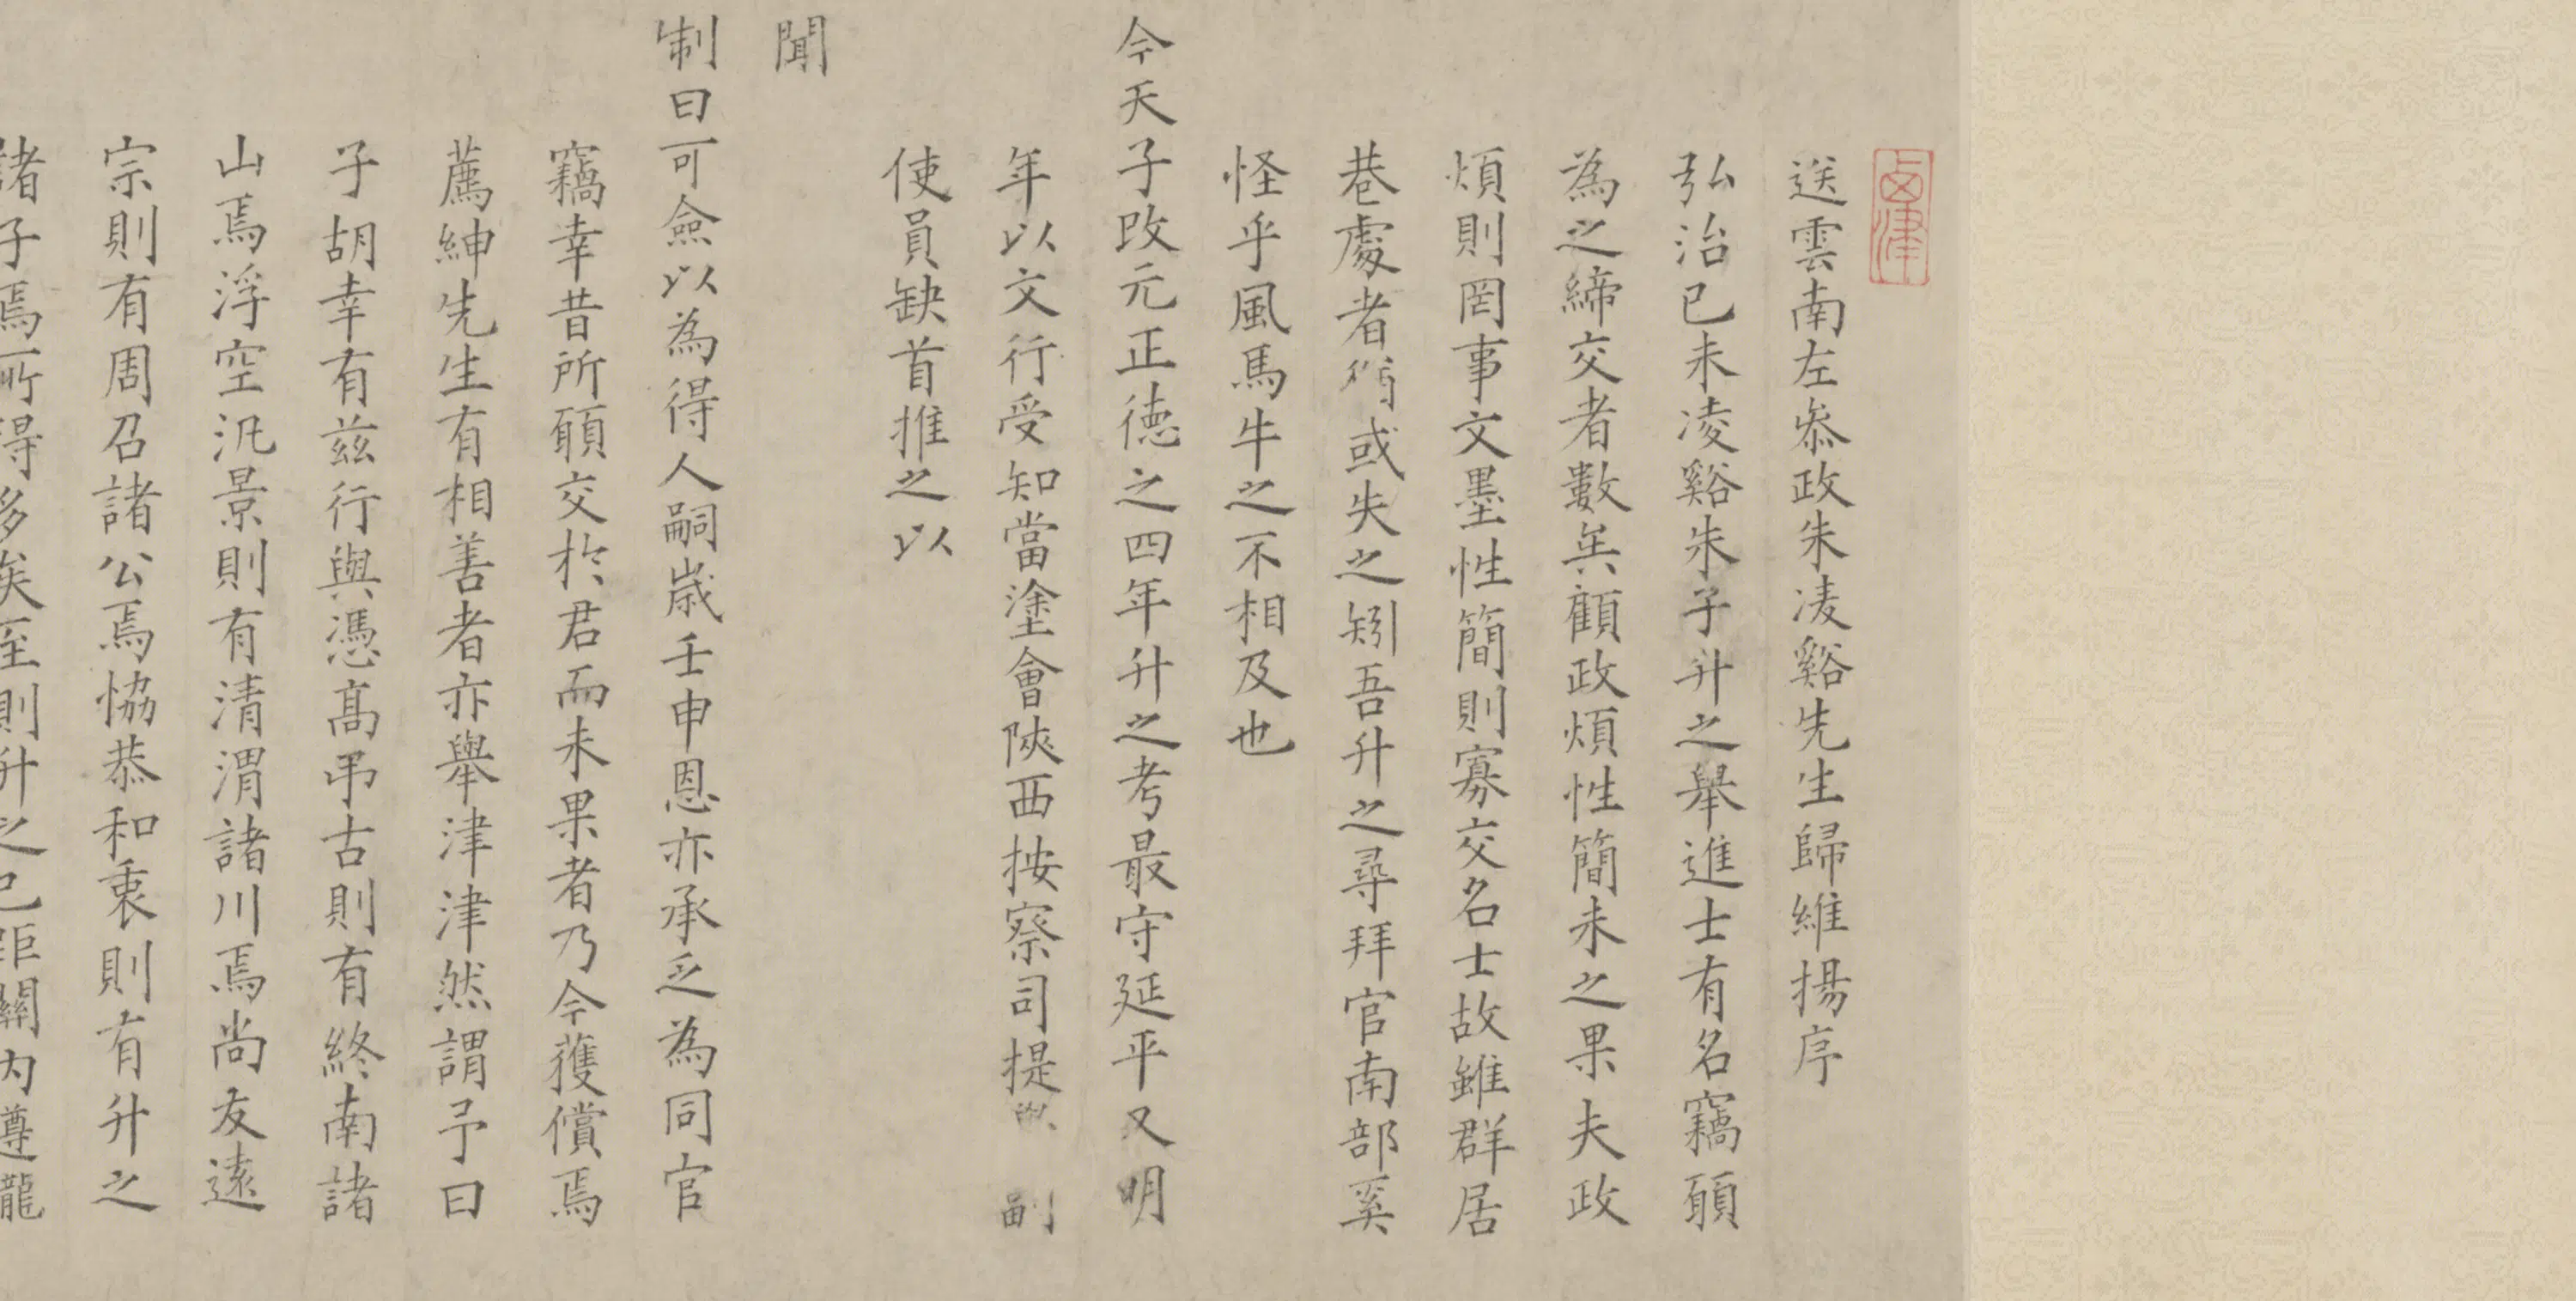 送雲南左叅政朱凌谿先生歸維揚序
弘治已未凌谿朱子升之舉進士有名竊願
為之締交者數矣顧政煩性簡未之果夫政
煩則罔事文墨性簡則寡交名士故雖群居
巷處者或失之矧吾升之尋拜官南部奚
怪乎風馬牛之不相及也
今天子改元正德之四年升之考最守延平又明
年以文行受知當塗會陝西按察司提 副
使員缺首推之以
聞
制曰可僉以為得人嗣歲壬申恩亦承乏為同官
竊幸昔所願交於君而未果者乃今獲償焉
薦紳先生有相善者亦舉津津然謂予曰
子胡幸有兹行與憑高弔古則有終南諸
山焉浮空汎景則有清渭諸川焉尚友遠
宗則有周召諸公焉恊恭和衷則有升之
諸子焉所得多矣至則升之已距關内遵龍